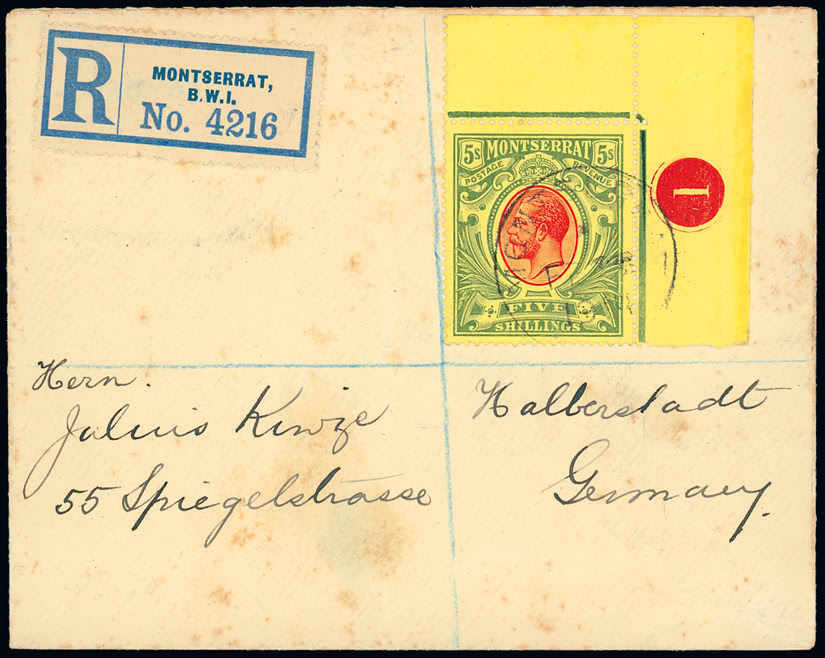 R
MONTSERRAT,
B.W.I.
No. 4216
5s MONTSERRAT 5s
POSTAGE REVENUE
FIVE
SHILLINGS
1
Hern.
Julius Kinze
55 Spiegelstrasse
Halberstadt
Germany.